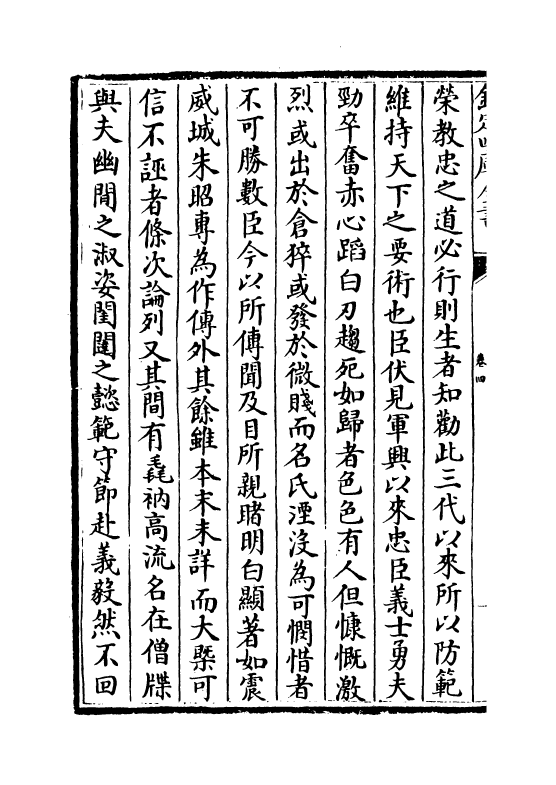 欽定四庫全書
卷四
榮教忠之道必行則生者知勸此三代以來所以防範
維持天下之要術也臣伏見軍興以來忠臣義士勇夫
勁卒奮赤心蹈白刃趨死如歸者色色有人但慷慨激
烈或出於倉猝或發於微賤而名氏湮没為可憫惜者
不可勝數臣今以所傳聞及目所親睹明白顯著如震
威城朱昭專為作傳外其餘雖本末未詳而大槩可
信不誣者條次論列又其間有毳衲高流名在僧牒
與夫幽閒之淑姿閨閫之懿範守節赴義毅然不回